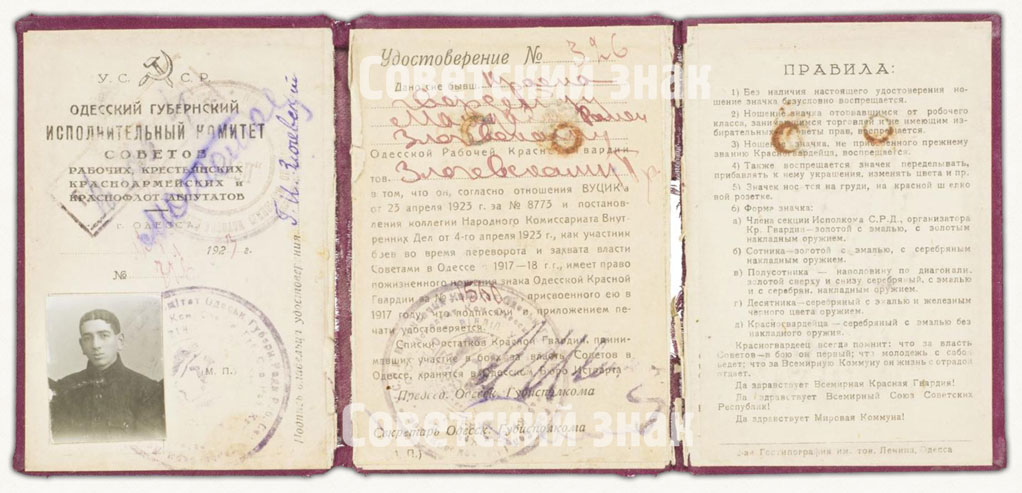 У.С.С.Р.
ОДЕССКИЙ ГУБЕРНСКИЙ
ИСПОЛНИТЕЛЬНЫЙ КОМИТЕТ
СОВЕТОВ
РАБОЧИХ, КРЕСТЬЯНСКИХ
КРАСНОАРМЕЙСКИХ и
КРАСНОФЛОТ. ДЕПУТАТОВ
г. ОДЕССА
192 г.
№
(М. П.)
Подпись владельца удостоверения
Удостоверение № 326
Дано сие бывш. Красно
гвардейцу
Злочевскому
Одесской Рабочей Красной Гвардии
тов. Злочевскому
в том, что он, согласно отношения ВУЦИК'а
от 23 апреля 1923 г. за № 8773 и постанов-
ления коллегии Народного Комиссариата Внут-
ренних Дел от 4-го апреля 1923 г., как участник
боев во время переворота и захвата власти
Советами в Одессе в 1917—18 г.г., имеет право
пожизненного ношения знака Одесской Красной
Гвардии присвоенного ею в
1917 году, что подписями с приложением пе-
чати удостоверяется.
Списки остатков Красной Гвардии, прини-
мавших участие в боях за власть Советов в
Одессе, хранится в Одесском Бюро Истпарта
Председ. Одесск. Губисполкома
Секретарь Одесск. Губисполкома
(М. П.)
ПРАВИЛА:
1) Без наличия настоящего удостоверения но-
шение значка безусловно воспрещается.
2) Ношение значка оторвавшимся от рабочего
класса, занимающимся торговлей и не имеющим из-
бирательных в Советы прав, воспрещается.
3) Ношение значка, не присвоенного прежнему
званию Красногвардейца, воспрещается.
4) Также воспрещается значек переделывать,
прибавлять к нему украшения, изменять цвета и пр.
5) Значек носится на груди, на красной шелко-
вой розетке.
6) Форма значка:
а) Члена секции Исполкома С.Р.Д., организатора
Кр. Гвардии—золотой с эмалью, с золотым
накладным оружием.
б) Сотника—золотой с эмалью, с серебряным
накладным оружием.
в) Полусотника — наполовину по диагонали,
золотой сверху и снизу серебряный, с эмалью
и с серебрян. накладным оружием.
г) Десятника—серебряный с эмалью и железным
черного цвета оружием.
д) Красногвардейца — серебряный с эмалью без
накладного оружия.
Красногвардеец всегда помнит: что за власть
Советов—в бою он первый; что молодежь с собой
ведет; что за Всемирную Коммуну он жизнь с отрадой
отдает.
Да здравствует Всемирная Красная Гвардия!
Да здравствует Всемирный Союз Советских
Республик!
Да здравствует Мировая Коммуна!
Гостипография им. тов. Ленина, Одесса
Советский знак
Советский знак